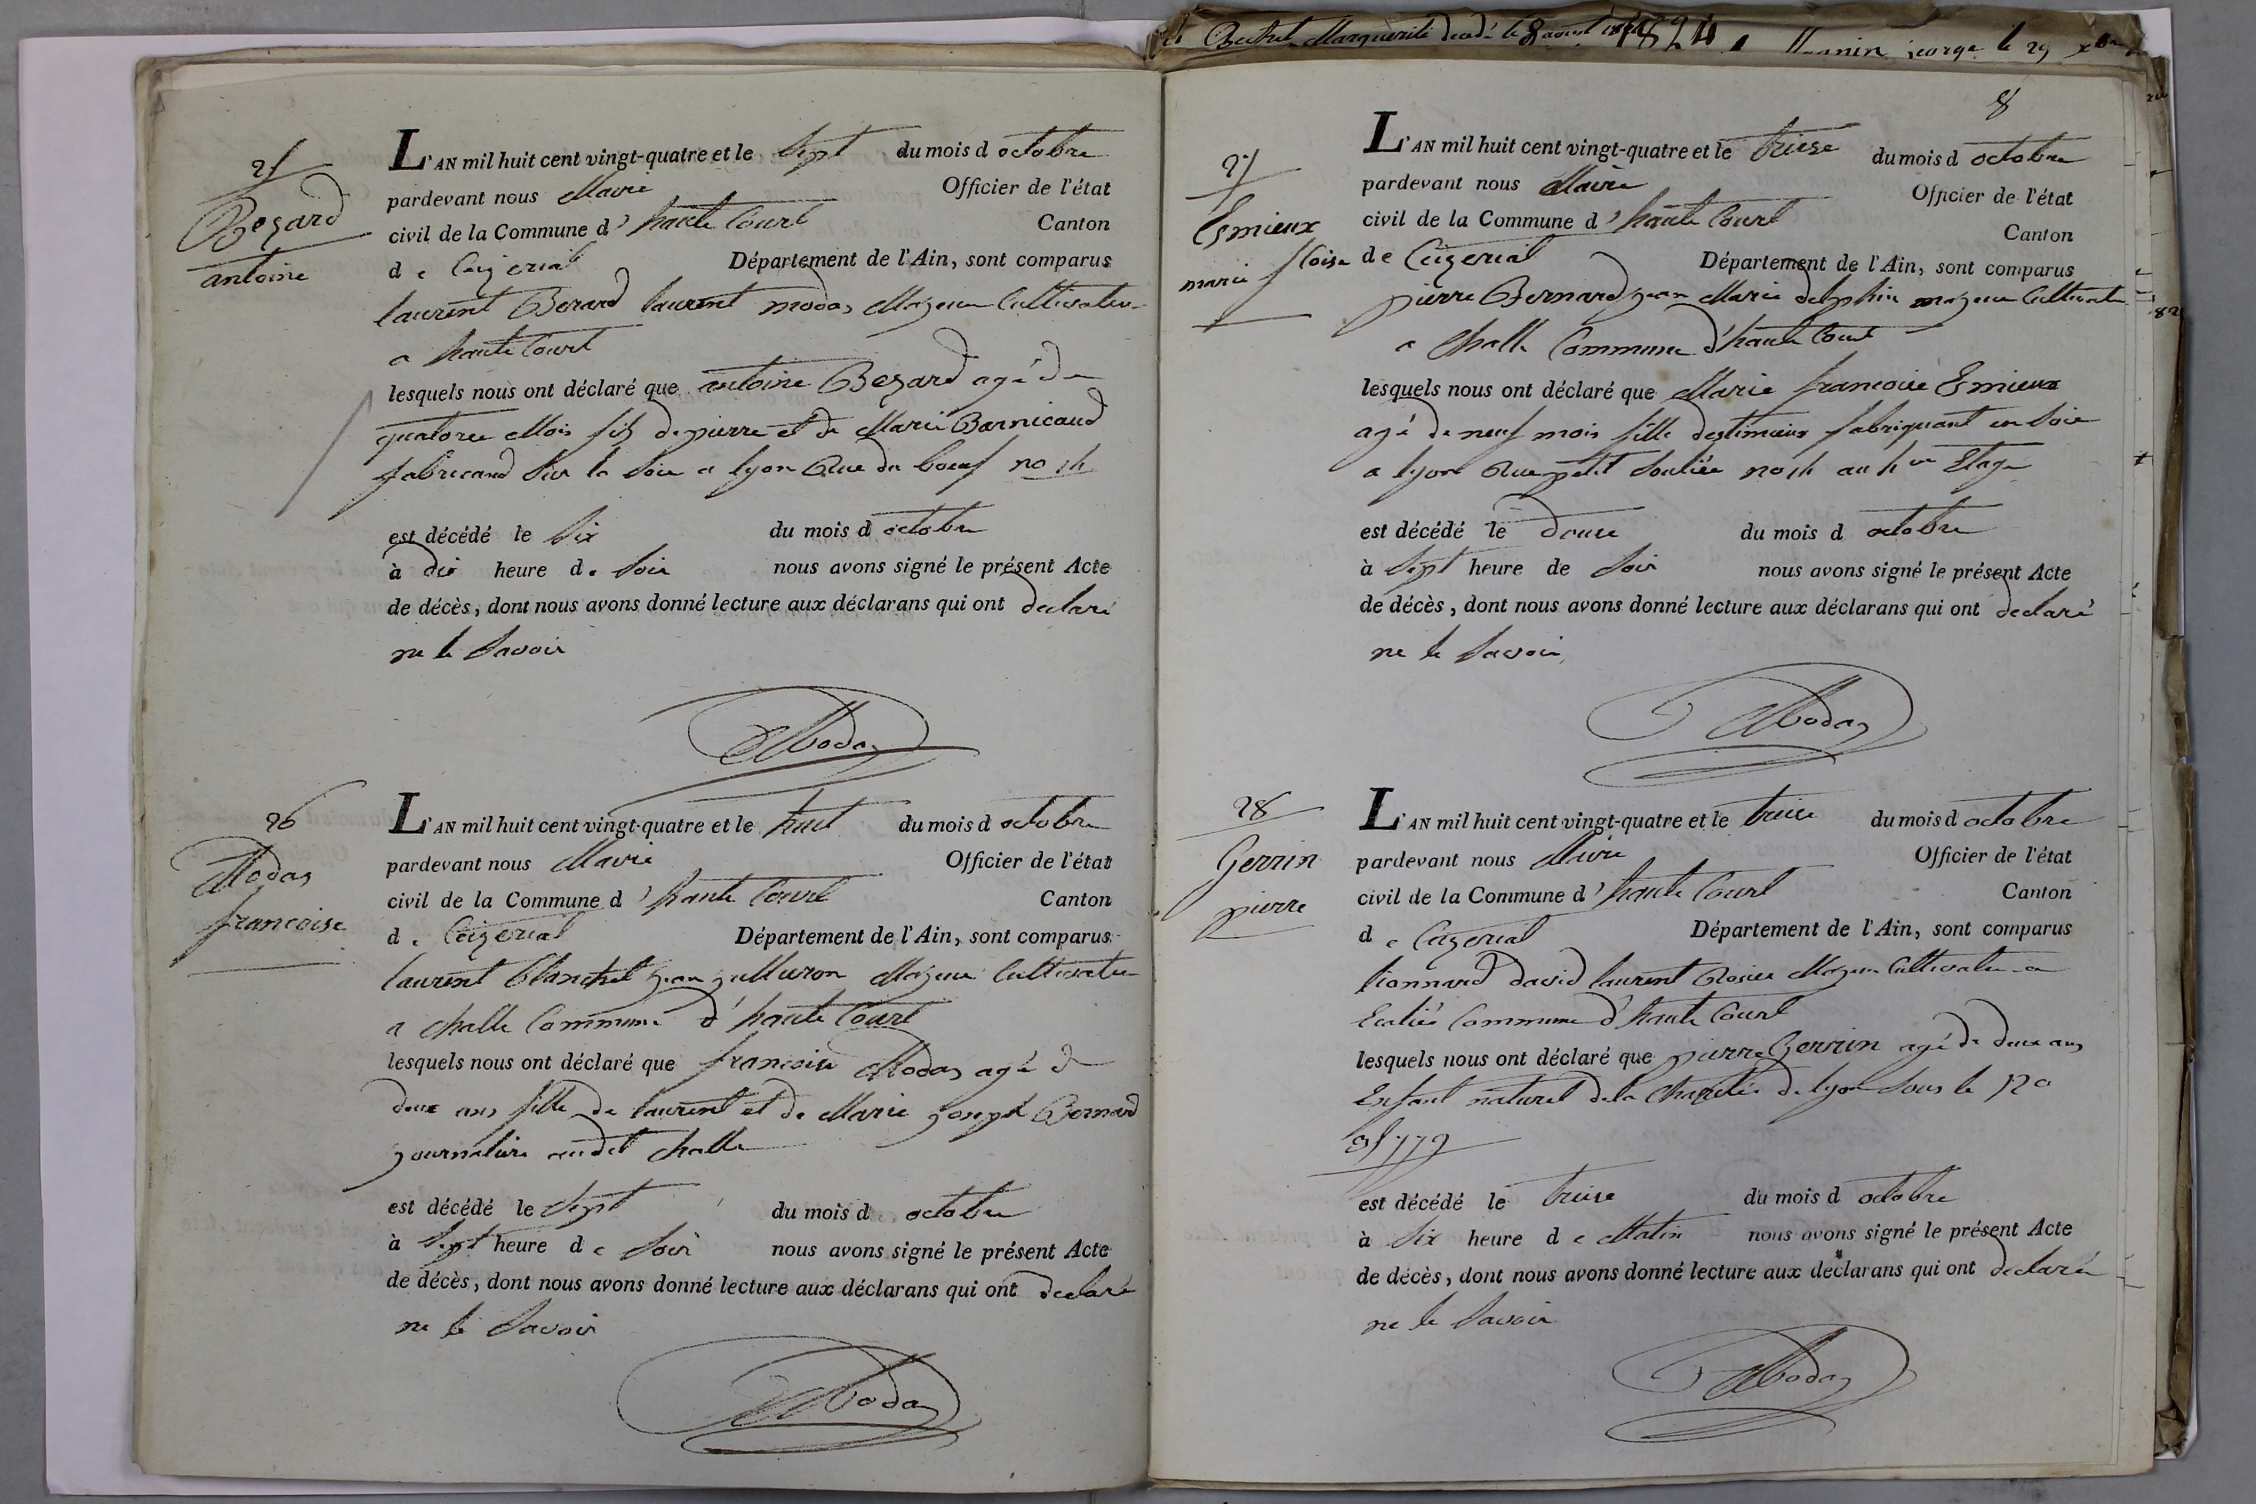 25
Bezard
antoine
L'AN mil huit cent vingt-quatre et le Sept du mois d octobre
pardevant nous Maire Officier de l'état
civil de la Commune d' haute Court Canton
de Ceizeriat Département de l'Ain, sont comparus
laurent Berard laurent modas Majeur Cultivateur
a haute Court
lesquels nous ont déclaré que antoine Bezard agé de
quatorze Mois fils de pierre et de Marie Barnicaud
fabricand Sur la Soie a lyon Rue du boeuf no 14
est décédé le Six du mois d octobre
à dix heure de Soir nous avons signé le présent Acte
de décès, dont nous avons donné lecture aux déclarans qui ont declaré
ne le Savoir
Modas
26
Modas
francoise
L'AN mil huit cent vingt-quatre et le huit du mois d octobre
pardevant nous Maire Officier de l'état
civil de la Commune d' haute Court Canton
de Ceizeriat Département de l'Ain, sont comparus
laurent blanchet jean Majeur Cultivateur
a challe Commune d'haute Court
lesquels nous ont déclaré que francoise Modas agé de
deux ans fille de laurent et de Marie joseph Bernard
journaliere audit challe
est décédé le Sept du mois d octobre
à Sept heure de Soir nous avons signé le présent Acte
de décès, dont nous avons donné lecture aux déclarans qui ont declaré
ne le Savoir
Modas
Marguerite decedé le 8 aout 1824 george le 29
8
27
Esmieux
marie floise
L'AN mil huit cent vingt-quatre et le treise du mois d octobre
pardevant nous Maire Officier de l'état
civil de la Commune d' haute Court Canton
de Ceizeriat Département de l'Ain, sont comparus
pierre Bernard jean Marie delphin majeur Cultivateur
a challe Commune d'haute Court
lesquels nous ont déclaré que Marie francoise Esmieux
agé de neuf mois fille destimieux fabriquant en Soie
a lyon Rue petit Souliée no 14 au 4me Etage
est décédé le douse du mois d octobre
à Sept heure de Soir nous avons signé le présent Acte
de décès, dont nous avons donné lecture aux déclarans qui ont declaré
ne le Savoir
Modas
28
Gerrin
pierre
L'AN mil huit cent vingt-quatre et le treise du mois d octobre
pardevant nous Maire Officier de l'état
civil de la Commune d' haute Court Canton
de Ceizeriat Département de l'Ain, sont comparus
lionnard david laurent Rosier Majeur Cultivateur a
Commune d'haute Court
lesquels nous ont déclaré que pierre Gerrin agé de deux ans
Enfant naturel de la Charitée de lyon Sous le no
est décédé le treise du mois d octobre
à Six heure de Matin nous avons signé le présent Acte
de décès, dont nous avons donné lecture aux déclarans qui ont declaré
ne le Savoir
Modas